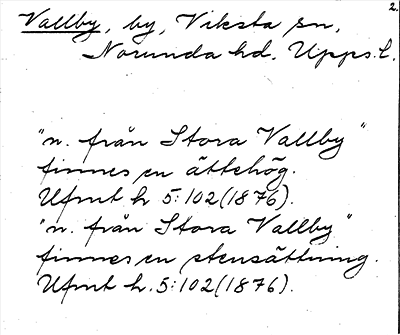 2.
Vallby, by, Viksta sn,
Norunda hd, Upps. l.
"n. från Stora Vallby"
finnes en ättehög.
Ufmt h 5:102 (1876).
"n. från Stora Vallby"
finnes en stensättning.
Ufmt h. 5:102 (1876).